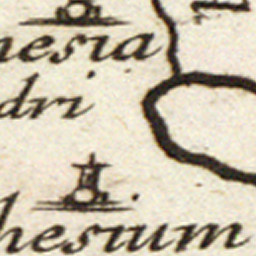 nesia
dri
hesium